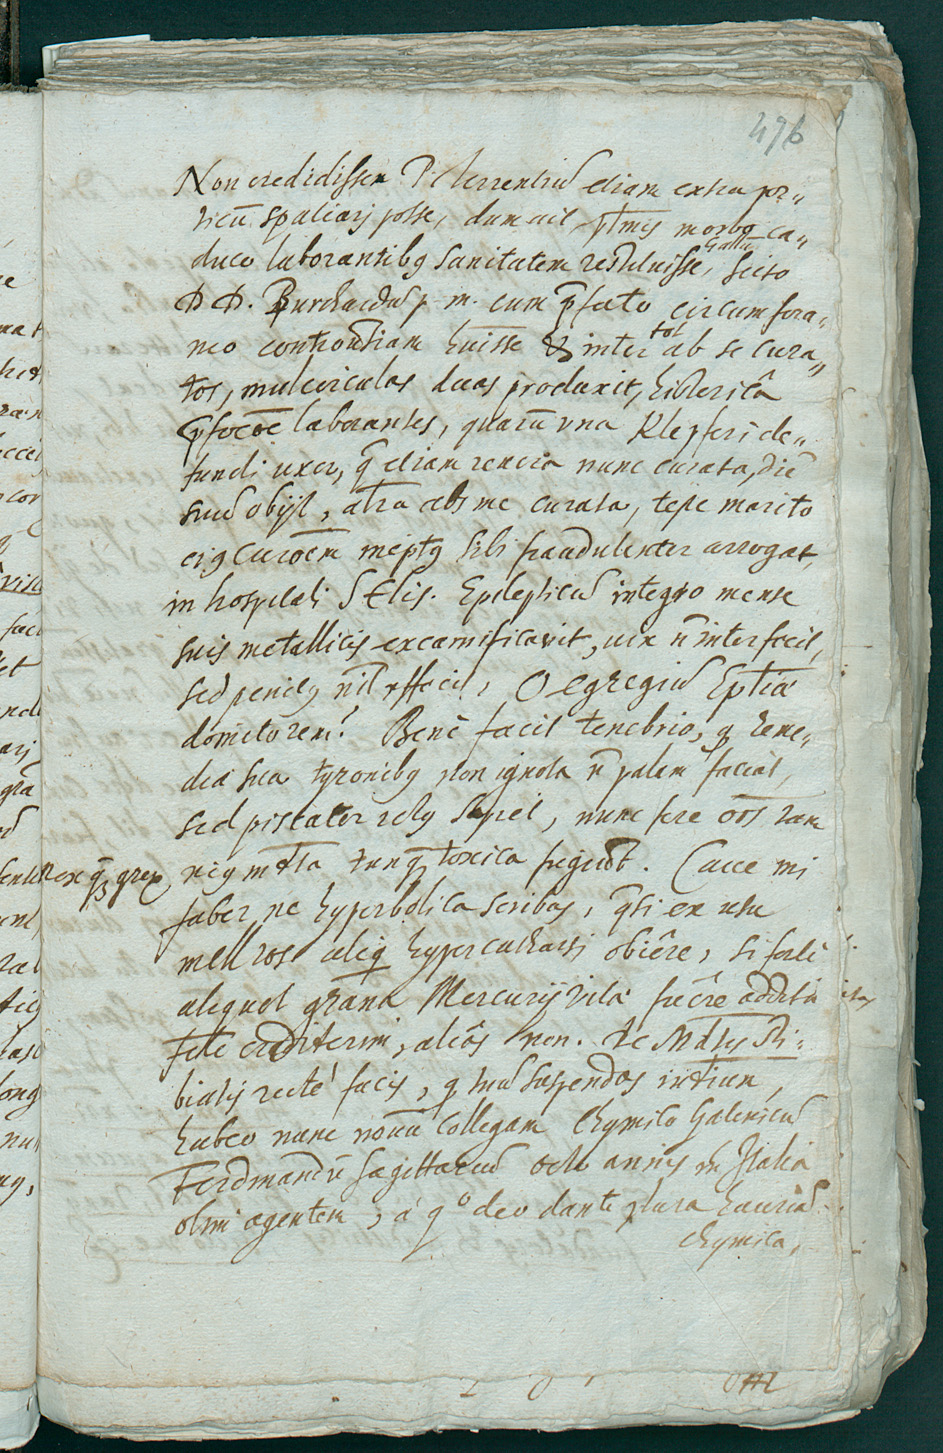 476
Non credidissem Pilterrentiu etiam extra por„
ticū spatiarj posse, dum ait, plimis morbo ca„
duco laborantibq sanitatem restituisse, scito
Gallū
D D. Burckardū p. m. cum p̄fato circumfora„
neo controv̄siam huisse & inter tot ab se cura„
tos, mulierculas duas produxit, histericâ
p̄focōe laborantes, quarū una Klepferi de„
functi uxor, q̄ etiam revera nunc curata, diē
suū obijt, altra abs me curata, teste marito
eiq curōem ineptq sibi fraudulenter arrogat,
in hospitali S Elis. Epilepticū integro mense
suis metallicis excarnificavit, vix n̄ interfecit,
sed penitq nil effecit, O egregiū Eptiæ
domitorem! Benè facit tenebrio, q reme„
dia sua tyronibq non ignota n̄ palam faciat,
sed piscator ictq sapiet, nunc fere oēs tam
Rex q̄ grex,
eiq mēta tanq̄ toxica fugiūt. Cave mi
faber, ne hyperbolica scribas, q̄si ex usu
mell ros. aliq hypercatharsi obiêre, si forte
aliquot grana Mercurij vitæ fuêre addita
facile crediderim, aliâs non. De
bialis rectè facis, q suspendas
habeo nunc novū collegam Chymico Galenicū
Ferdinandū Sagittariū octo annis in Italia
olim agentem, á q° deo dante plura hauriā
chymica,